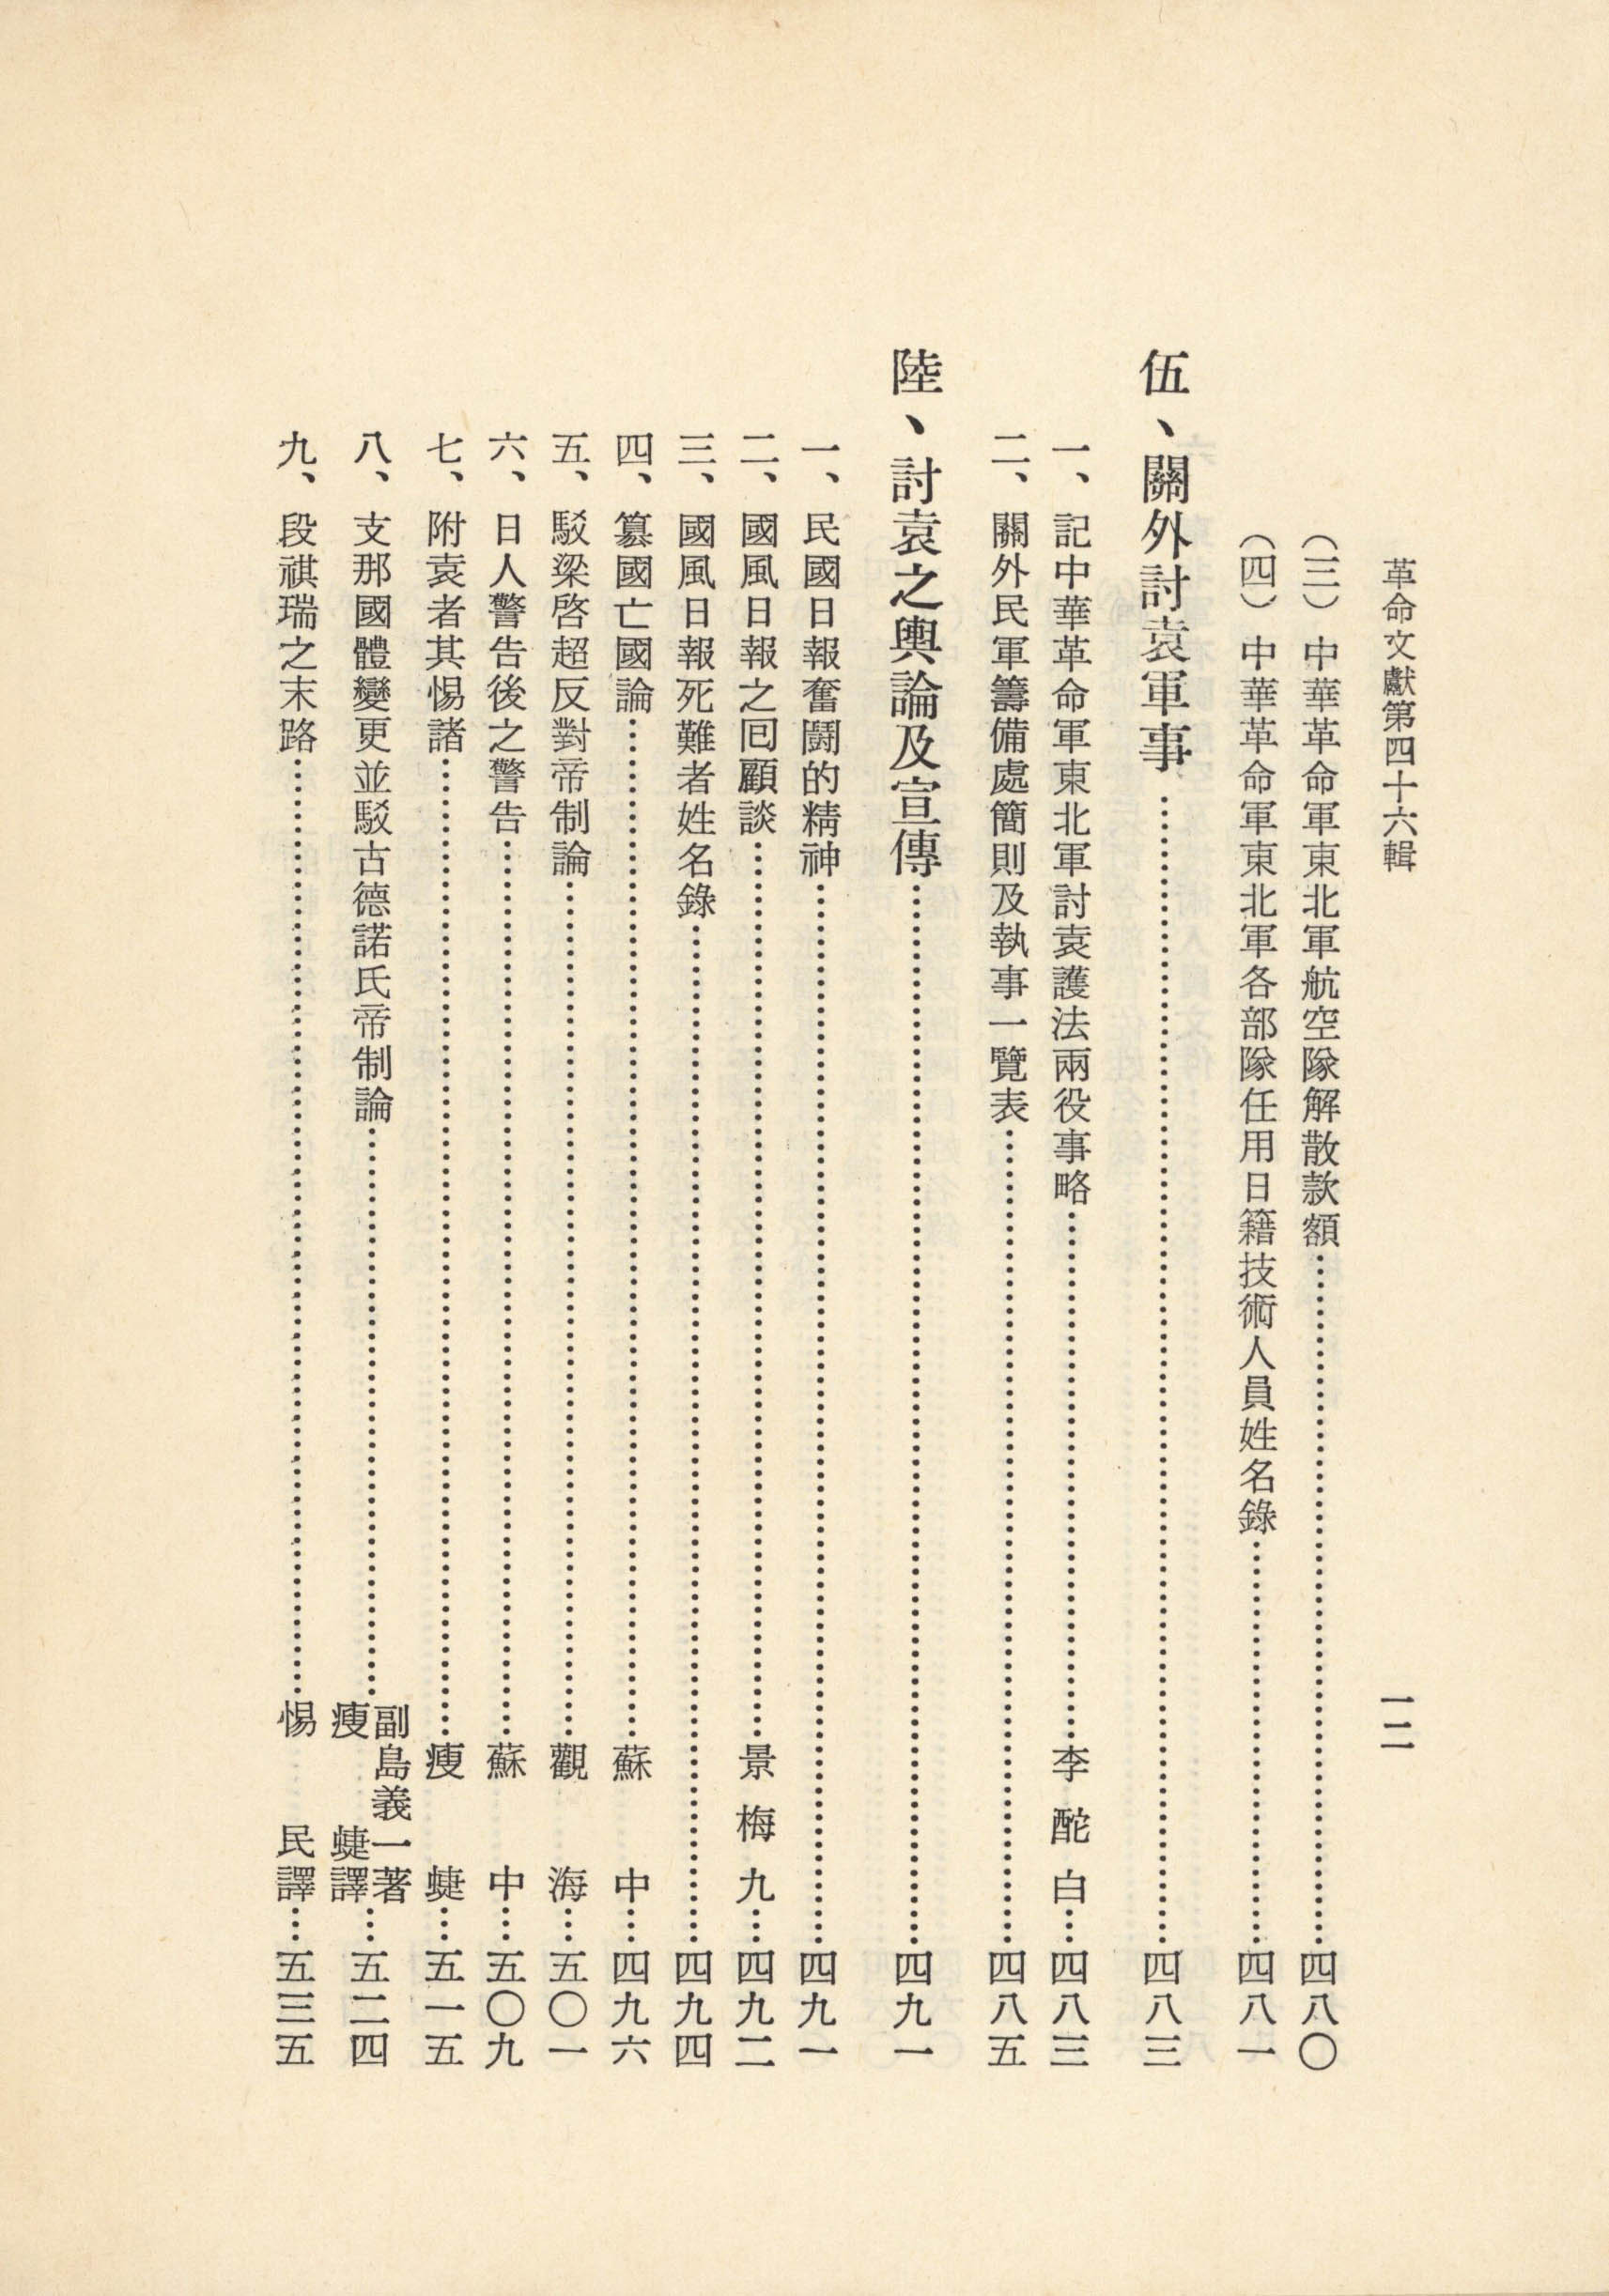 革命文獻第四十六輯
一二
（三）中華革命軍東北軍航空隊解散款額……四八〇
（四）中華革命軍東北軍各部隊任用日籍技術人員姓名錄……四八一
伍、關外討袁軍事……四八三
一、記中華革命軍東北軍討袁護法兩役事略……李酡白……四八三
二、關外民軍籌備處簡則及執事一覽表……四八五
陸、討袁之輿論及宣傳……四九一
一、民國日報奮鬪的精神……四九一
二、國風日報之囘顧談……景梅九……四九二
三、國風日報死難者姓名錄……四九四
四、篡國亡國論……蘇中……四九六
五、駁梁啓超反對帝制論……觀海……五〇一
六、日人警告後之警告……蘇中……五〇九
七、附袁者其惕諸……瘦蜨……五一五
八、支那國體變更並駁古德諾氏帝制論……副島義一著 瘦蜨譯……五二四
九、段祺瑞之末路……惕民譯……五三五